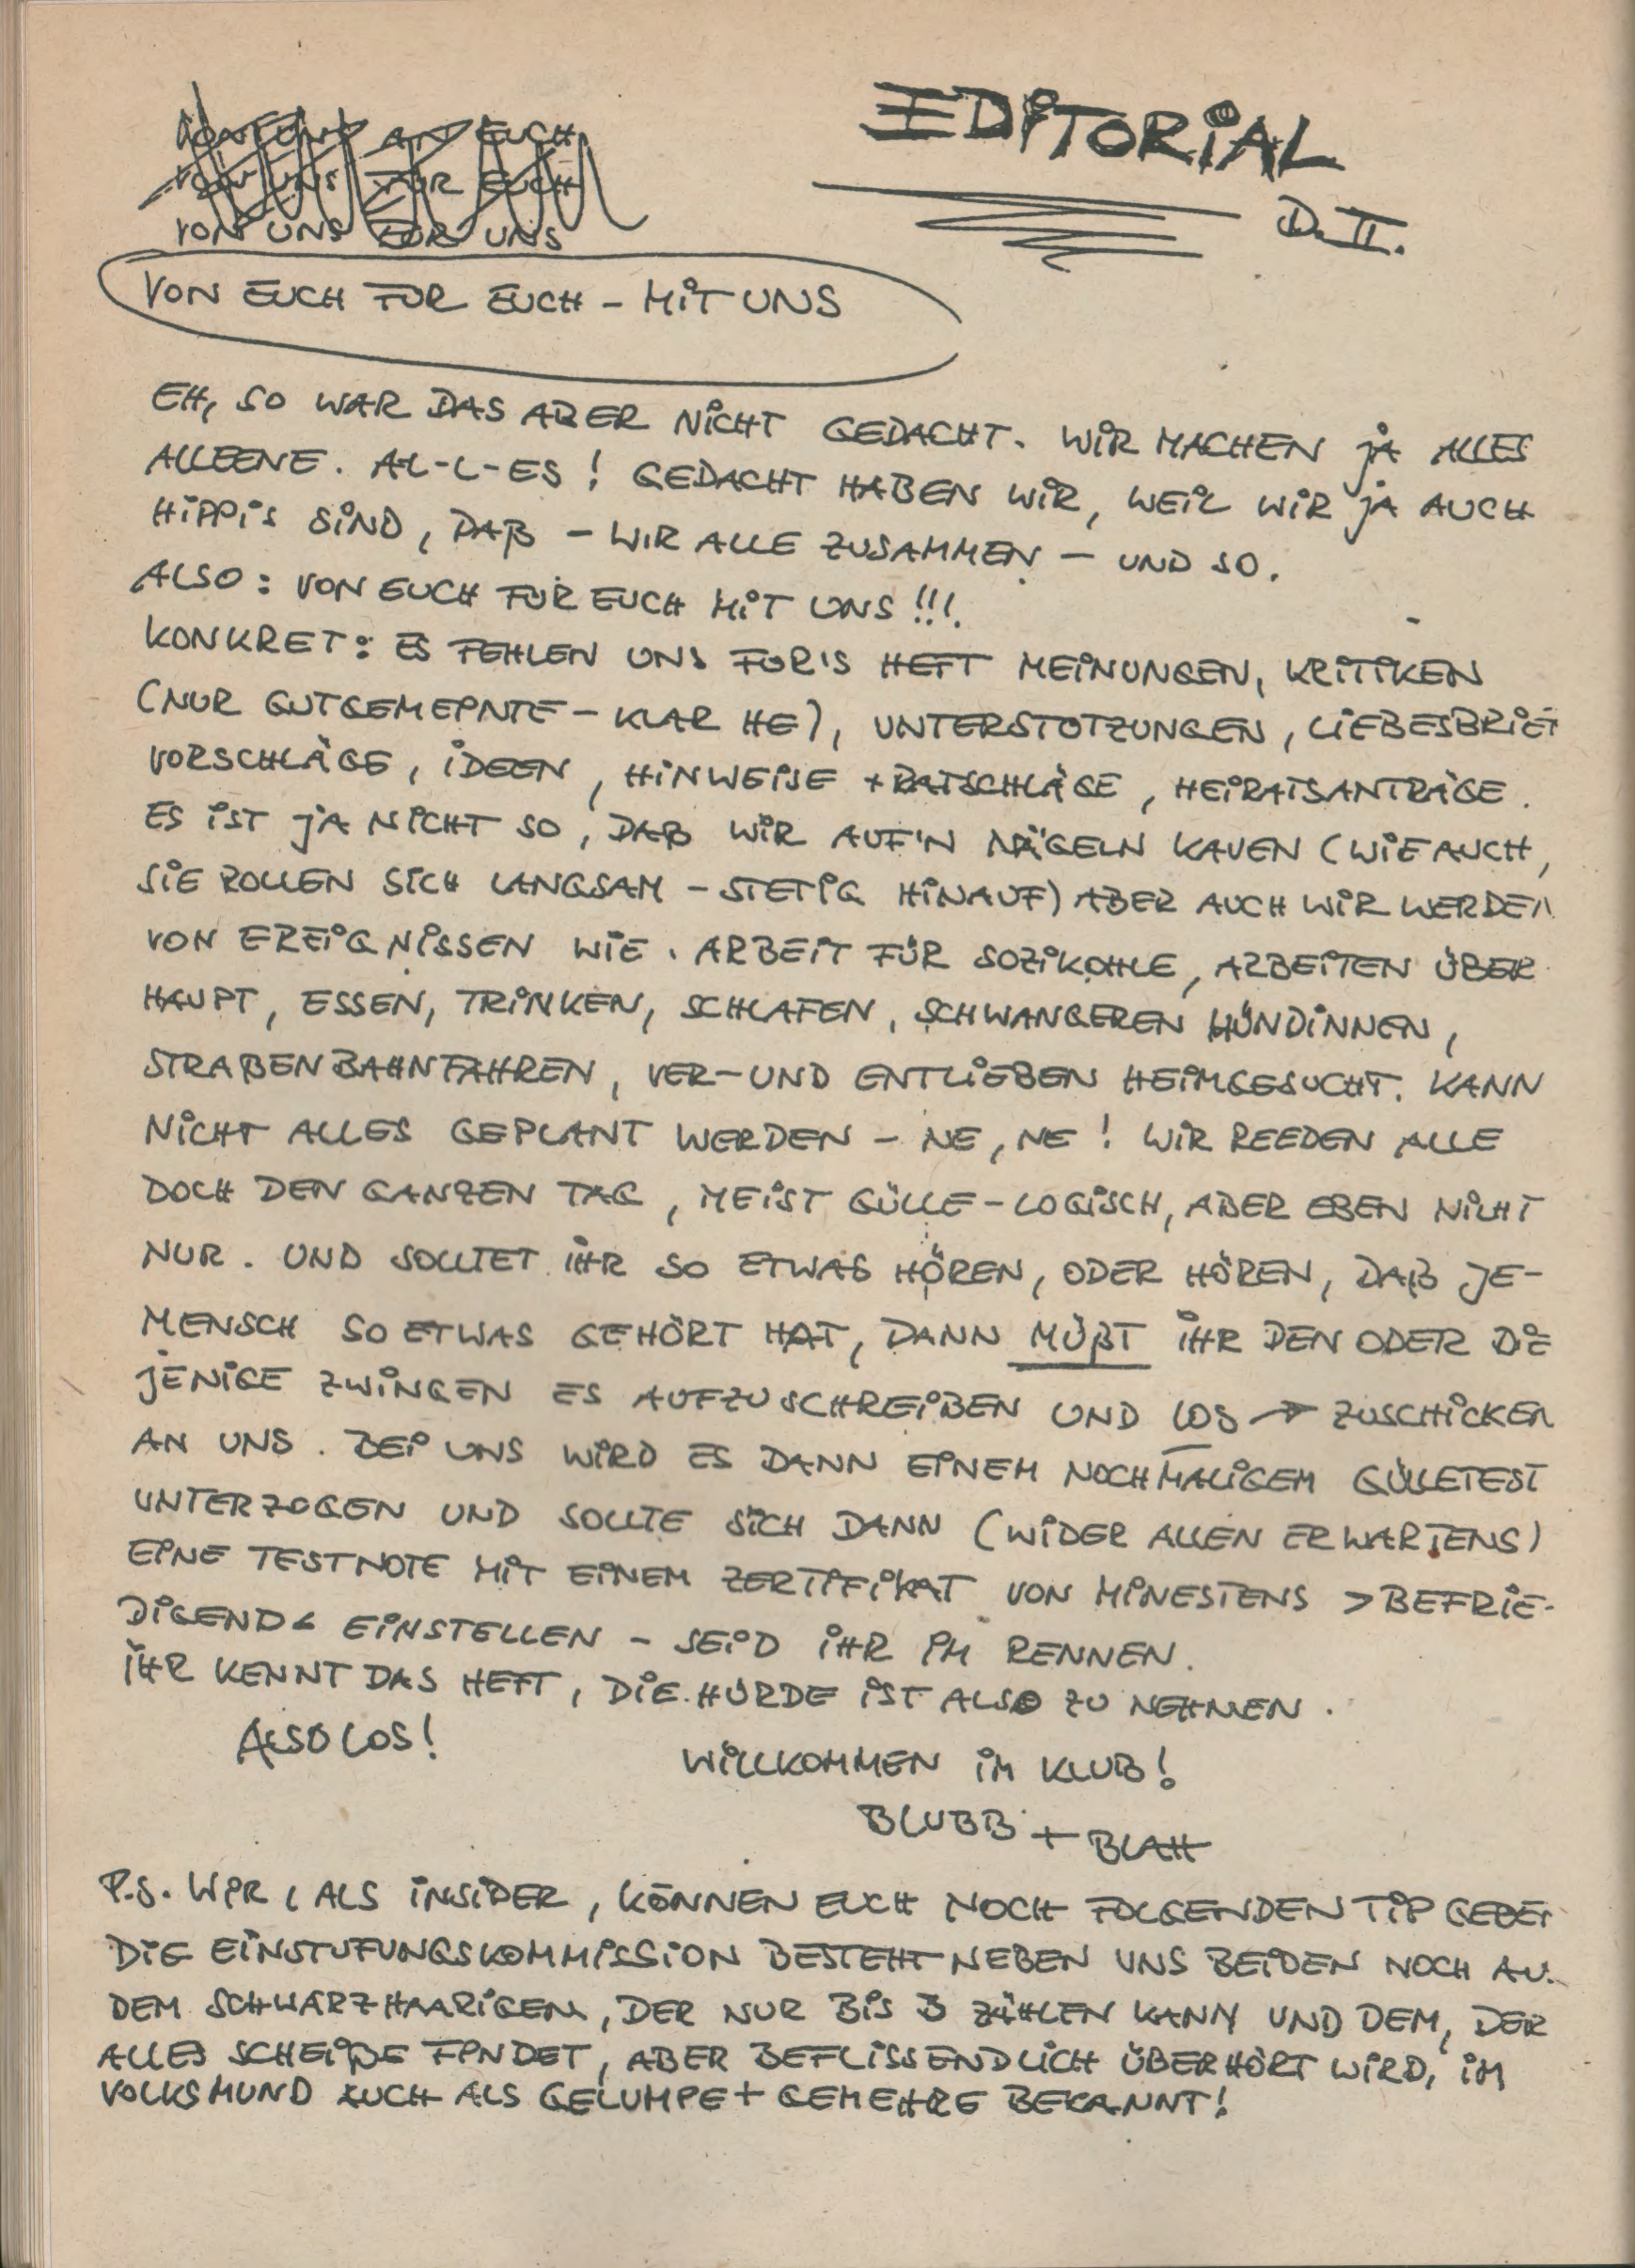 EDITORIAL
D. II.
VON UNS AN EUCH
VON UNS FÜR EUCH
VON UNS FÜR UNS
VON EUCH FÜR EUCH – MIT UNS
EH, SO WAR DAS ABER NICHT GEDACHT. WIR MACHEN JA ALLES
ALLEENE. AL-L-ES! GEDACHT HABEN WIR, WEIL WIR JA AUCH
HIPPIS SIND, DAß – WIR ALLE ZUSAMMEN – UND SO.
ALSO: VON EUCH FÜR EUCH MIT UNS!!!
KONKRET: ES FEHLEN UNS FÜR'S HEFT MEINUNGEN, KRITIKEN
(NUR GUTGEMEINTE – KLAR HE), UNTERSTÜTZUNGEN, LIEBESBRIEF
VORSCHLÄGE, IDEEN, HINWEISE + RATSCHLÄGE, HEIRATSANTRÄGE.
ES IST JA NICHT SO, DAß WIR AUF'N NÄGELN KAUEN (WIE AUCH,
SIE ROLLEN SICH LANGSAM – STETIG HINAUF) ABER AUCH WIR WERDEN
VON EREIGNISSEN WIE. ARBEIT FÜR SOZIKOHLE, ARBEITEN ÜBER
HAUPT, ESSEN, TRINKEN, SCHLAFEN, SCHWANGEREN HÜNDINNEN,
STRAßENBAHNFAHREN, VER- UND ENTLIEBEN HEIMGESUCHT. KANN
NICHT ALLES GEPLANT WERDEN – NE, NE! WIR REEDEN ALLE
DOCH DEN GANZEN TAG, MEIST GÜLLE-LOGISCH, ABER EBEN NICHT
NUR. UND SOLLTET IHR SO ETWAS HÖREN, ODER HÖREN, DAß JE-
MENSCH SO ETWAS GEHÖRT HAT, DANN MÜßT IHR DEN ODER DIE
JENIGE ZWINGEN ES AUFZUSCHREIBEN UND LOS → ZUSCHICKEN
AN UNS. BEI UNS WIRD ES DANN EINEM NOCHMALIGEM GÜLLETEST
UNTERZOGEN UND SOLLTE SICH DANN (WIDER ALLEN ERWARTENS)
EINE TESTNOTE MIT EINEM ZERTIFIKAT VON MINESTENS >BEFRIE-
DIGEND< EINSTELLEN – SEID IHR IM RENNEN.
IHR KENNT DAS HEFT, DIE HÜRDE IST ALSO ZU NEHMEN.
ALSO LOS!
WILLKOMMEN IM KLUB!
BLUBB + BLAH
P.S. WIR, ALS INSIDER, KÖNNEN EUCH NOCH FOLGENDEN TIP GEBEN
DIE EINSTUFUNGSKOMMISSION BESTEHT NEBEN UNS BEIDEN NOCH AU.
DEM SCHWARZHAARIGEN, DER NUR BIS 3 ZÄHLEN KANN UND DEM, DER
ALLES SCHEIßE FINDET, ABER BEFLISSENDLICH ÜBERHÖRT WIRD, IM
VOLKSMUND AUCH ALS GELUMPE + GEMEHRE BEKANNT!